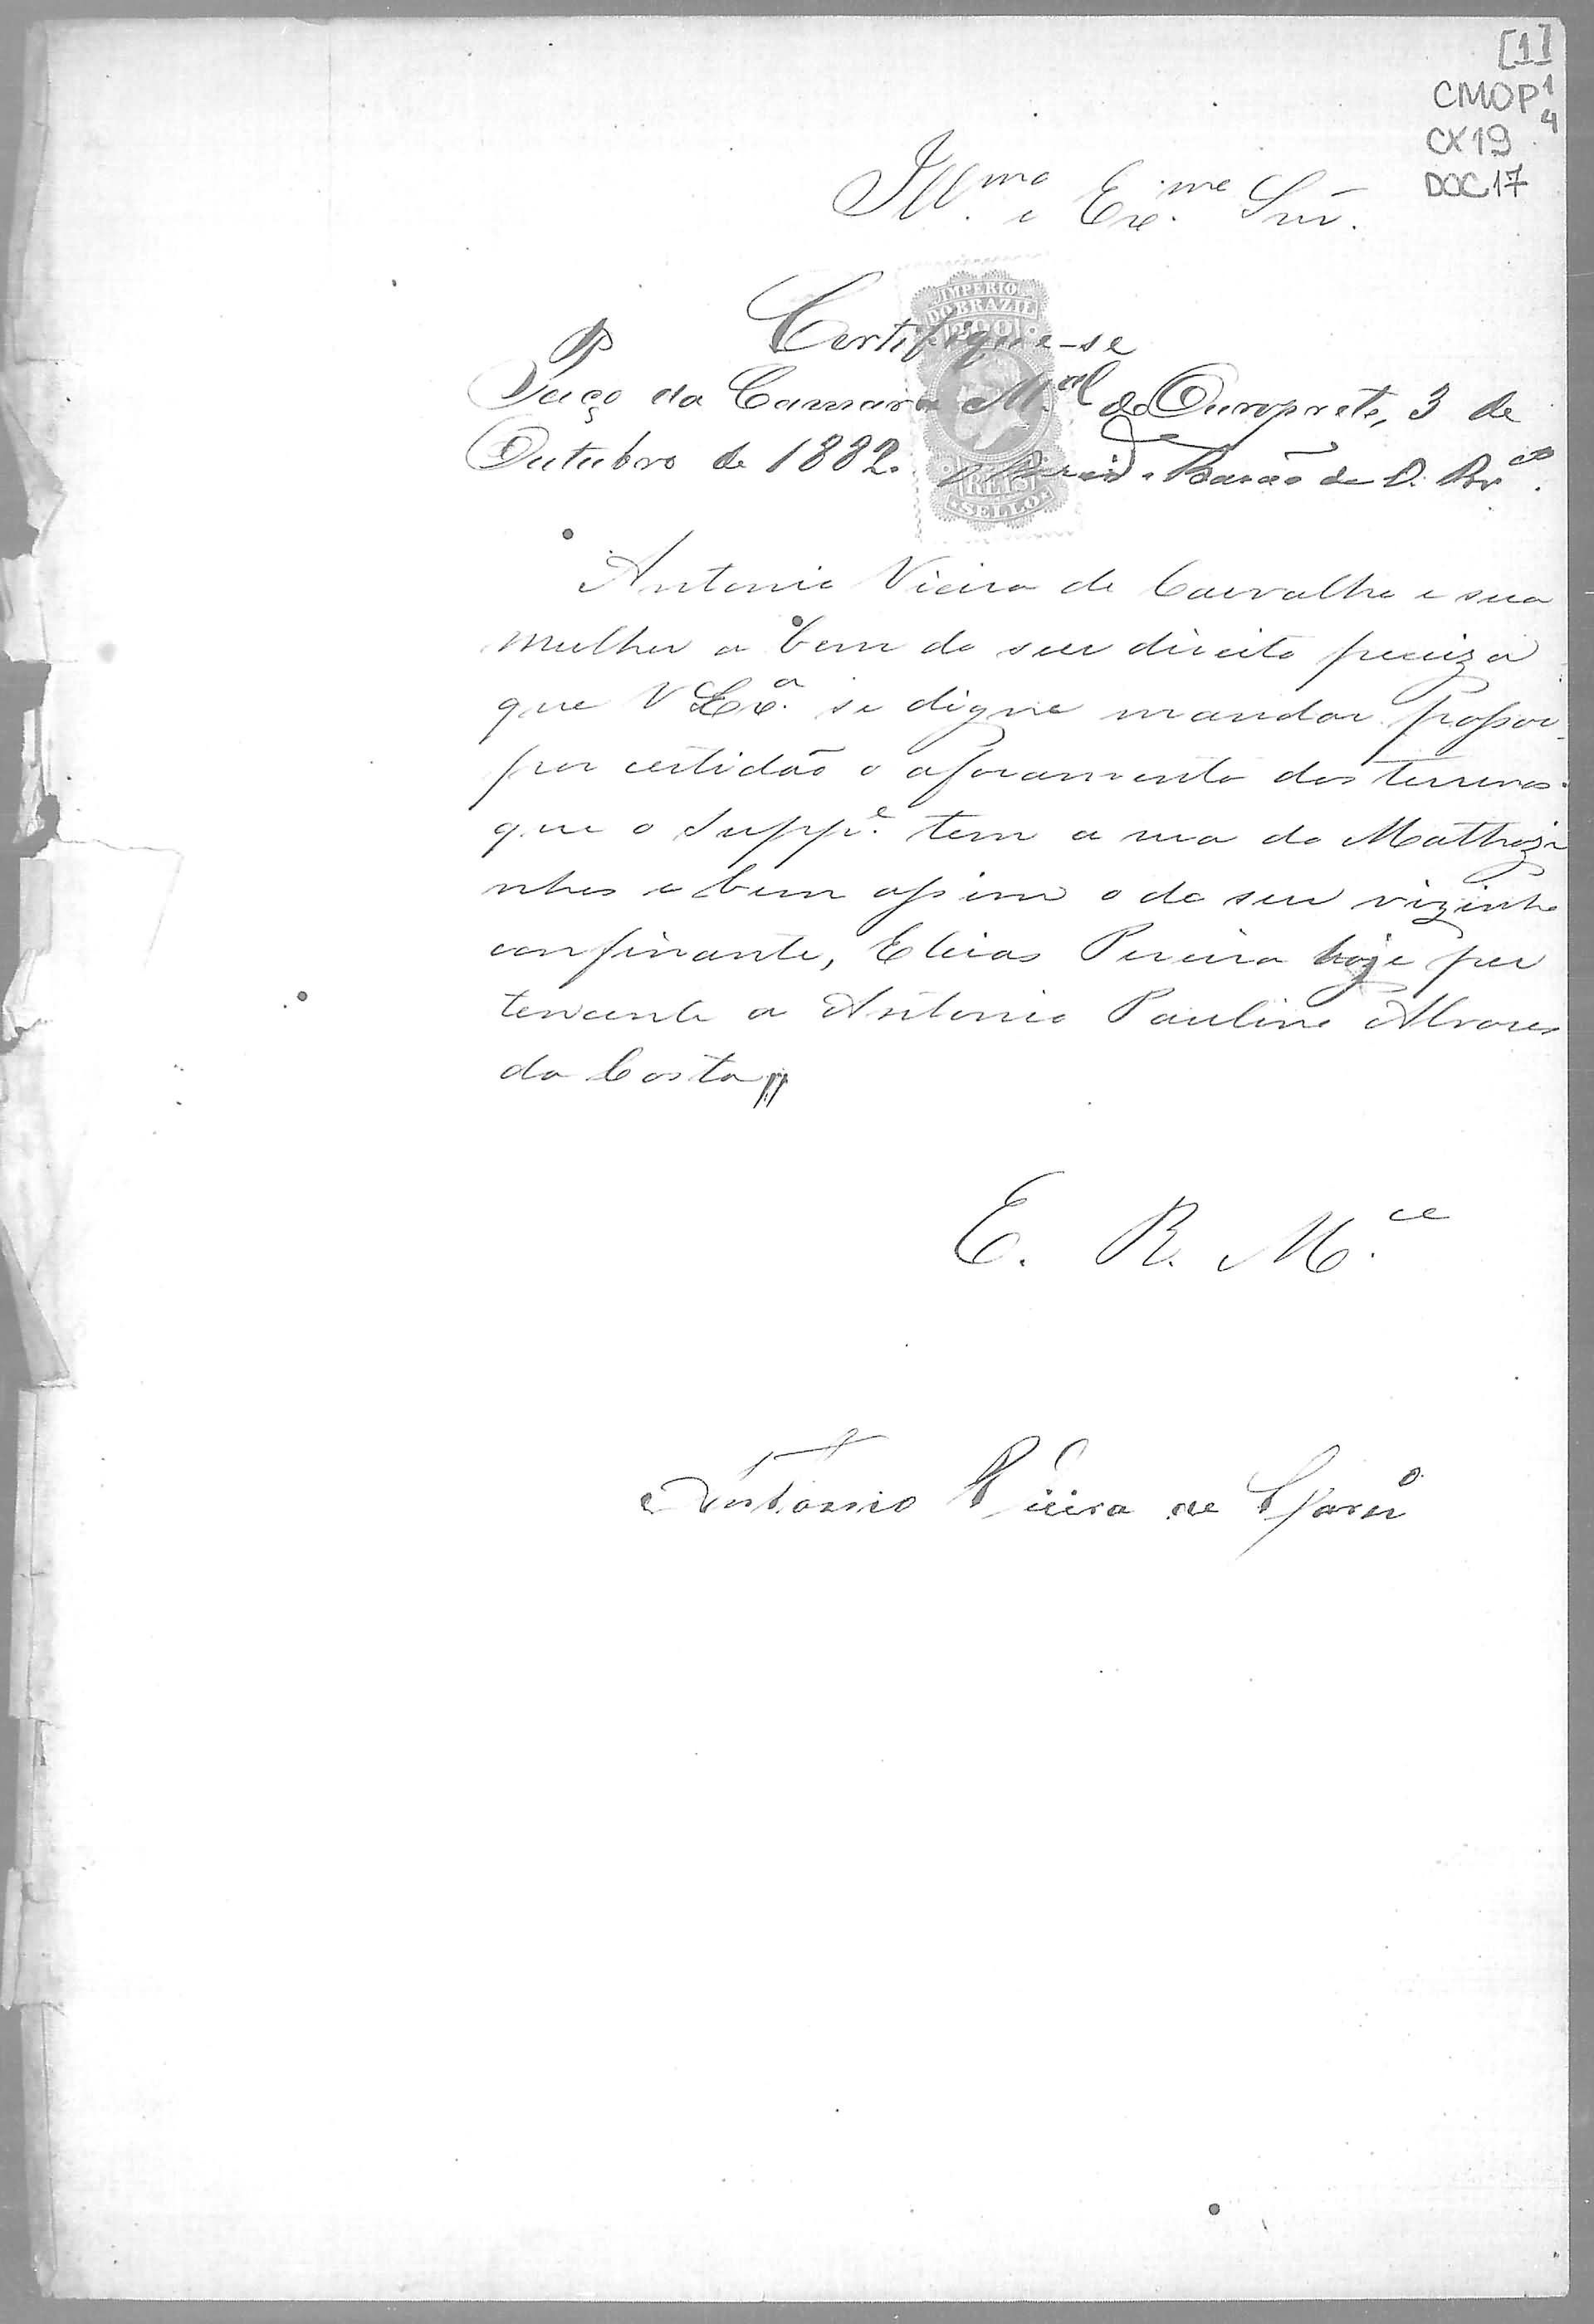 [1]
CMOP 1
4
CX19
DOC17
Illmo e Exmo Snr.
IMPERIO
DO BRAZIL
200
Certifique-se
Paço da Camara Mal do Ouropreto, 3 de
Outubro de 1882. Barão de
REIS
SELLO
Antonio Vieira de Carvalho e sua
mulher a bem do seu direito preciza
que V Exa. se digne mandar passar
por certidão o aforamento dos terrenos
que o Suppe. tem a rua do Mathozi
nhos e bem assim o de seu vizinho
confinante, Elias Pereira hoje per
tencente a Antonio Paulino Alvares
da Costa
E. R. Mce
Antonio Vieira de